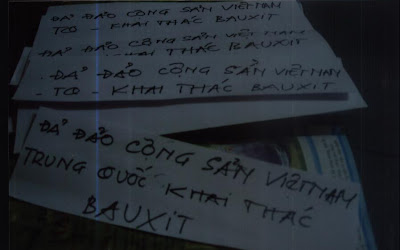 ĐẢ ĐẢO CỘNG SẢN VIỆTNAM
TQ - KHAI THÁC BAUXIT
ĐẢ ĐẢO CỘNG SẢN VIỆTNAM
KHAI THÁC BAUXIT
- ĐẢ ĐẢO CỘNG SẢN VIỆTNAM
- TQ - KHAI THÁC BAUXIT
ĐẢ ĐẢO CỘNG SẢN VIỆTNAM
TRUNG QUỐC KHAI THÁC
BAUXIT